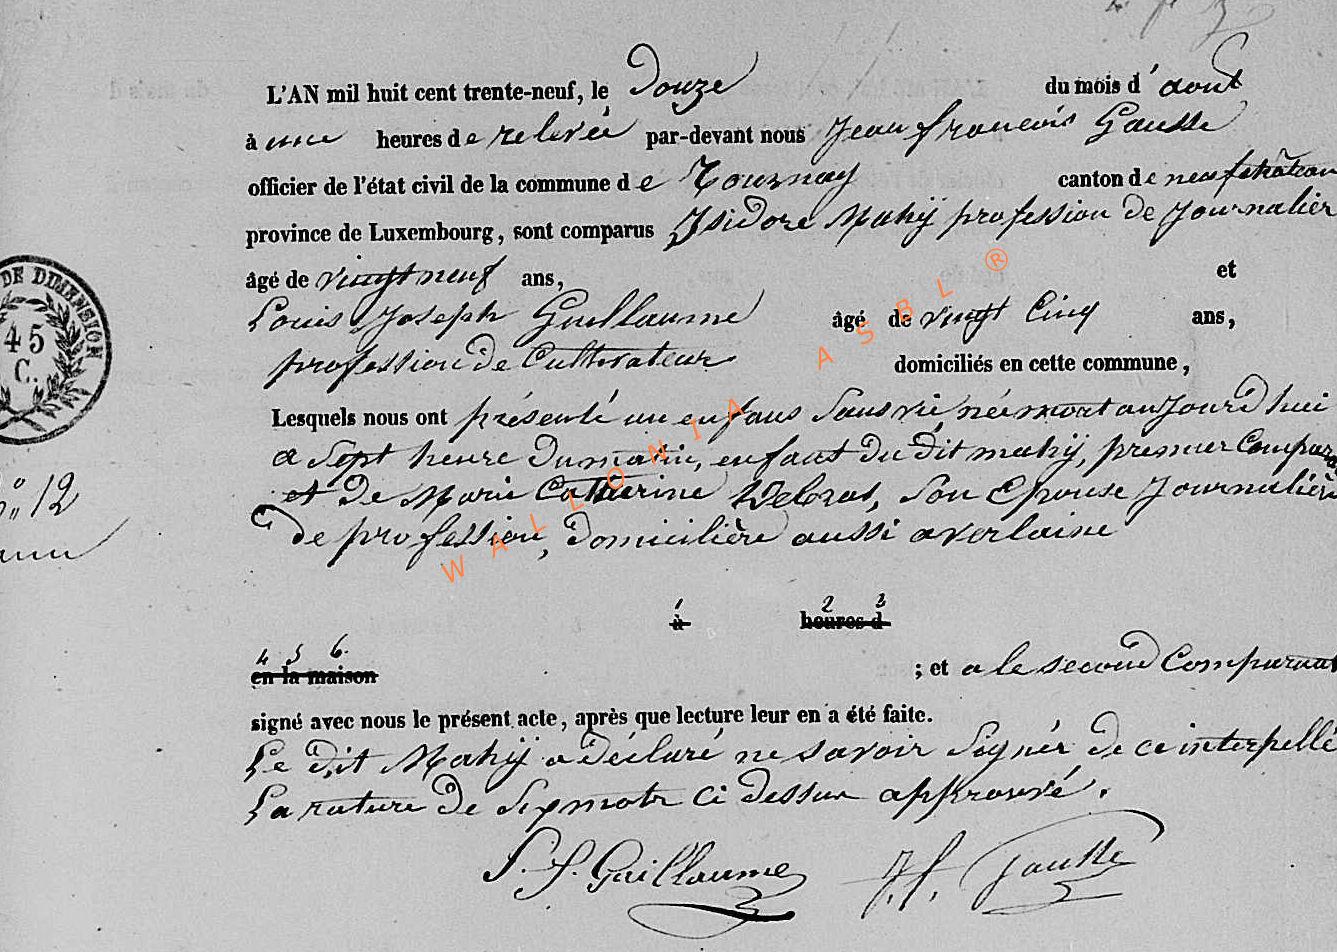 L'AN mil huit cent trente-neuf, le Douze du mois d'aout
à une heures de relevée par-devant nous Jean françois Gausse
officier de l'état civil de la commune de Tournay canton de neufchâteau
province de Luxembourg, sont comparus Isidore Mahÿ profession de Journalier
âgé de vingt neuf ans, et
Louis Joseph Guillaume âgé de vingt Cinq ans,
profession de Cultivateur domiciliés en cette commune,
Lesquels nous ont présenté un enfans Sans vie, née mort aujourd hui
a Sept heure Du matin, enfant du dit mahÿ, premier Comparant
et De Marie Catherine Son Epouse Journalière
de profession, Domicilière aussi a verlaine
1 2 3
à heures d
4 5 6
en la maison ; et a le second Comparant
signé avec nous le présent acte, après que lecture leur en a été faite.
Le Dit Mahÿ a Déclaré ne savoir Signér de ce interpellé
La rature De Six mots Ci dessus approuvé.
L. J. Guillaume J. f. Gausse
DE DIMENSION
45
C.
n° 12
WALLONIA ASBL ®